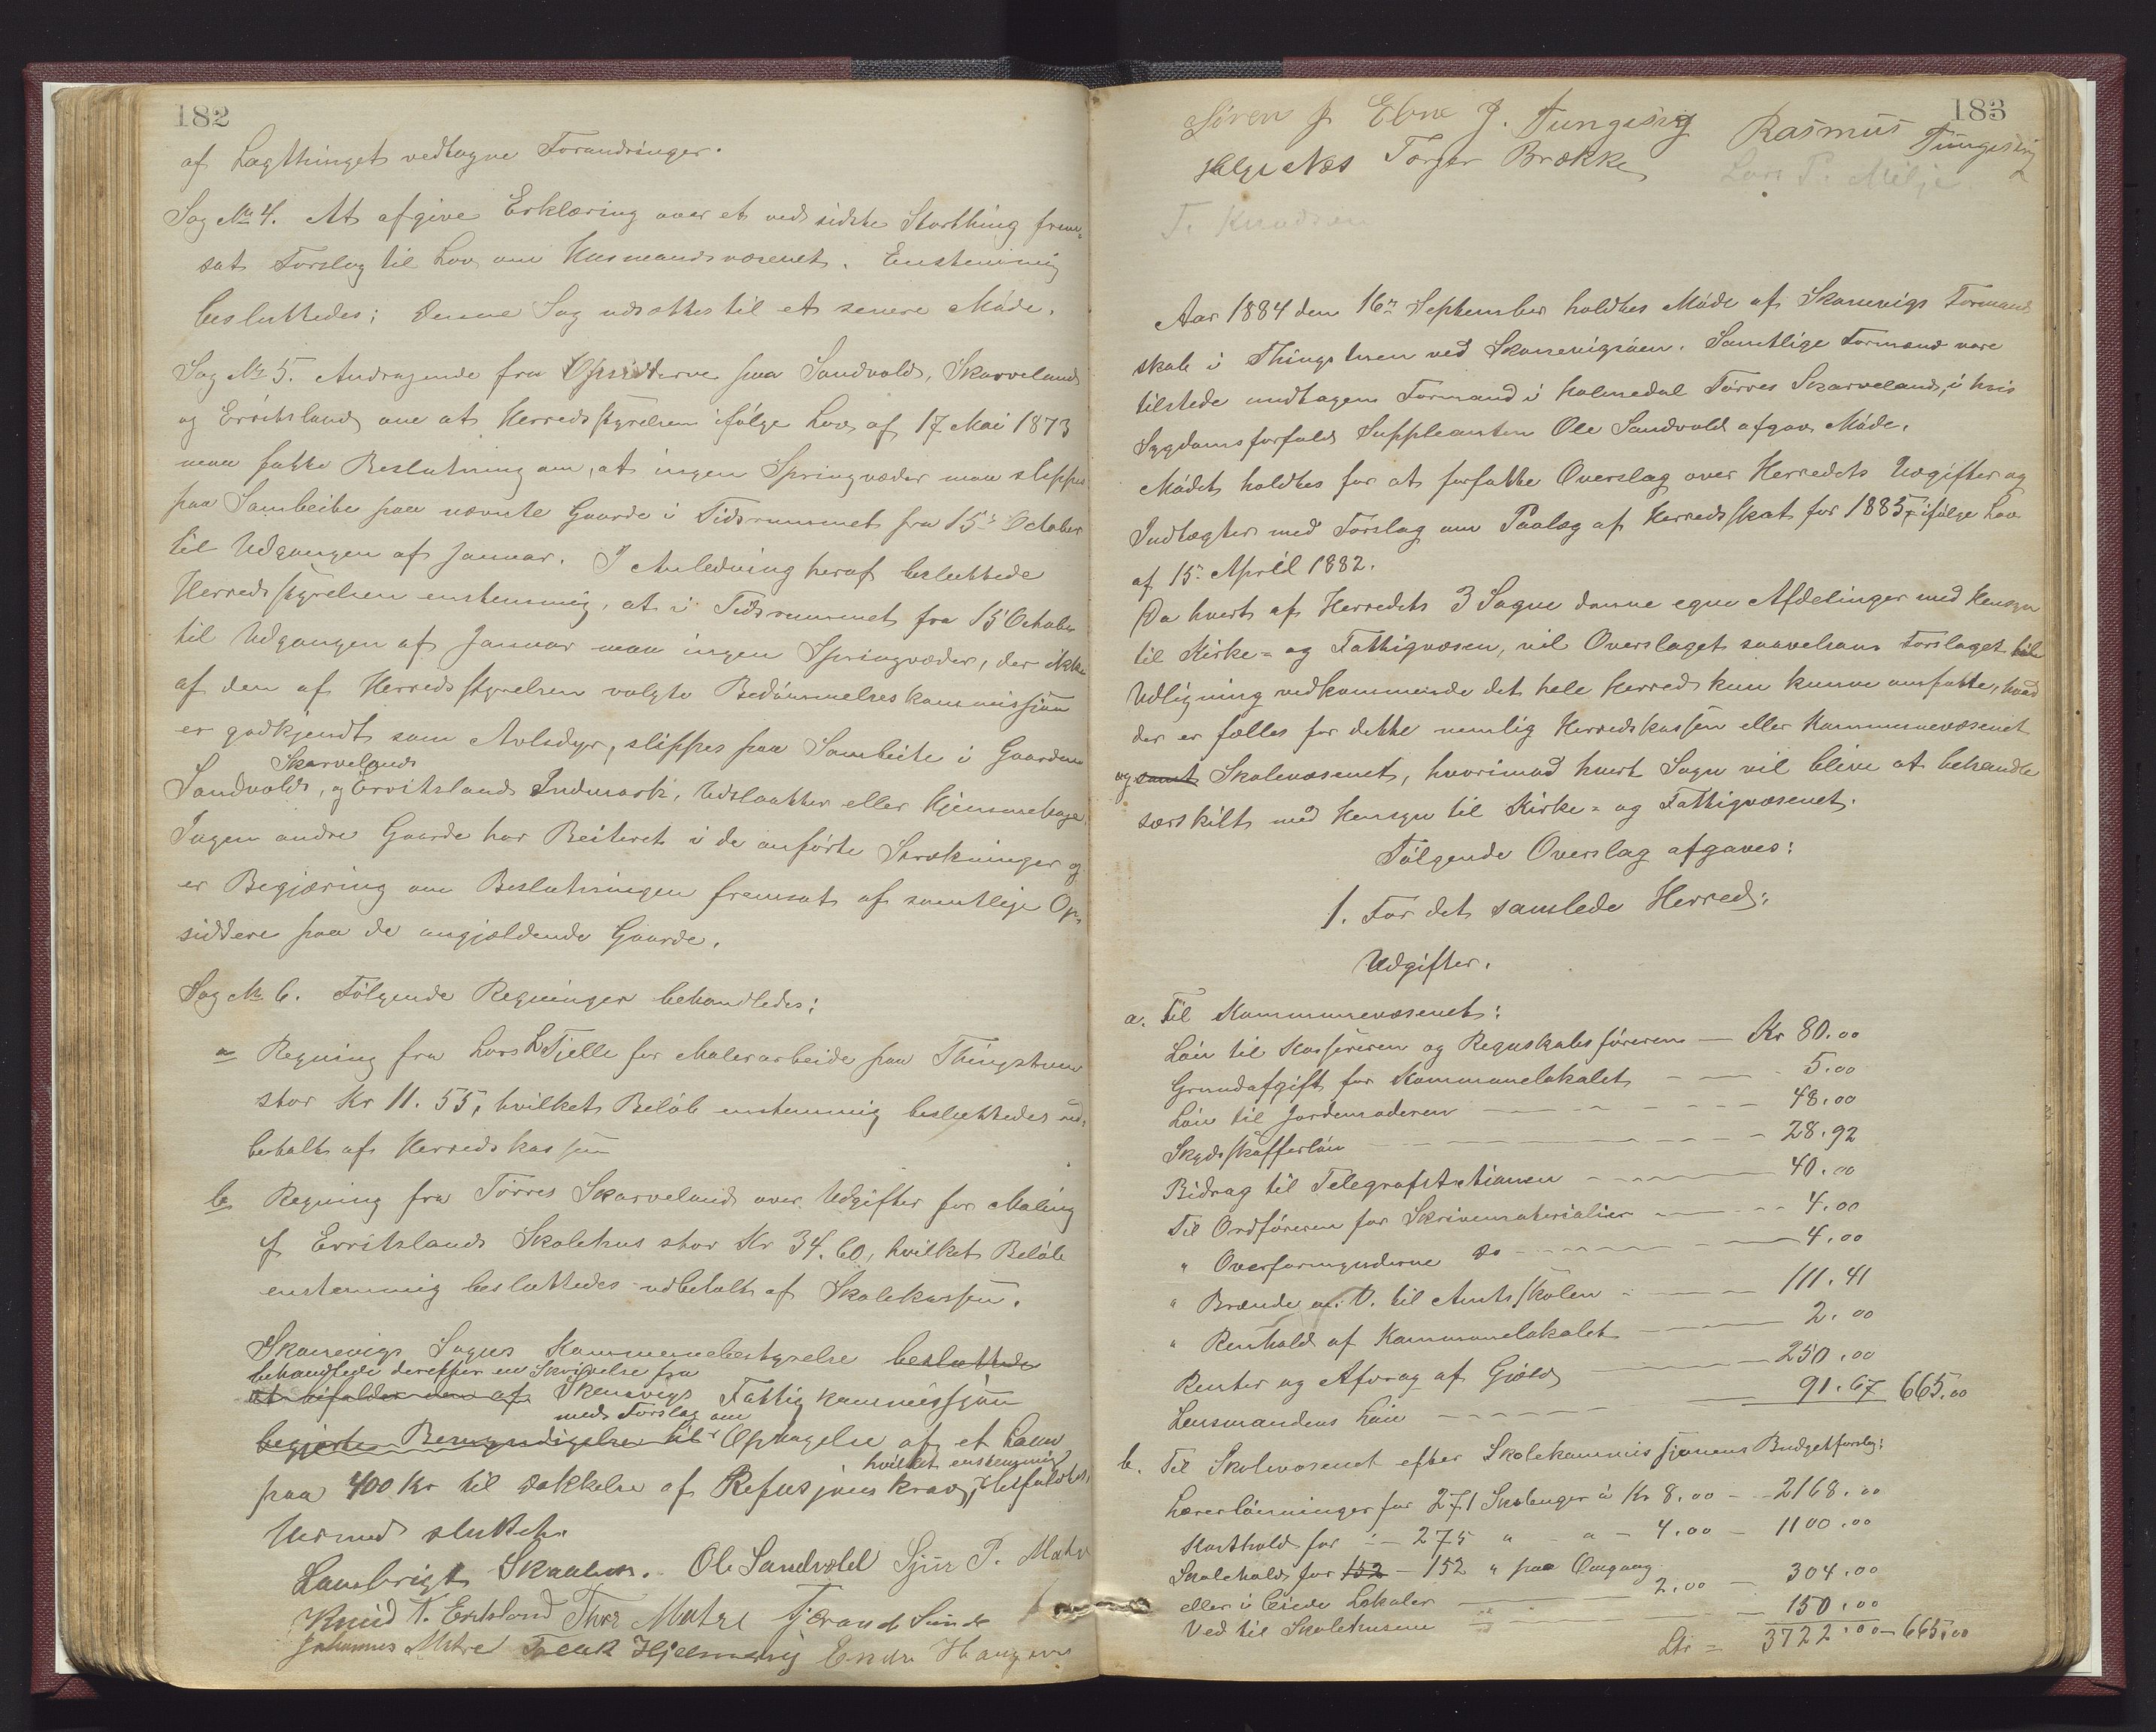 182
af Lagthinget vedtagne Forandringer.
Sag No 4. At afgive Erklæring over et ved sidste Storthing frem-
sat Forslag til Lov om Husmandsvæsenet. Enstemmig
besluttedes: Denne Sag udsættes til et senere Møde.
Sag No 5. Andragende fra Opsidderne paa Sandvold, Skarveland
og Erritsland om at Herredsstyrelsen ifølge Lov af 17 Mai 1873
maa fatte Beslutning om, at ingen Springvæder maa slippes
paa Sambeite paa nævnte Gaarde i Tidsrummet fra 15de October
til Udgangen af Januar. I Anledning heraf besluttede
Herredsstyrelsen enstemmig, at i Tidsrummet fra 15 October
til Udgangen af Januar maa ingen Springvæder, der ikke
af den af Herredsstyrelsen valgte Bedømmelseskommissjon
er godkjendt som Avlsdyr, slippes paa Sambeite i Gaardene
Skarvelands
Sandvolds, og Erritslands Indmark, Udslaatter eller Hjemmehage.
Ingen andre Gaarde har Beiteret i de anførte Strækninger og
er Begjæring om Beslutningen fremsat af samtlige Op-
siddere paa de angjældende Gaarde.
Sag No 6. Følgende Regninger behandledes:
a Regning fra Lars L Fjelle for Malerarbeide paa Thingstuen
stor Kr 11.55, hvilket Beløb enstemmig besluttedes ud-
betalt af Herredskassen
b Regning fra Tørres Skarveland over Udgifter for Maling
af Erritslands Skolehus stor Kr 34.60, hvilket Beløb
enstemmig besluttedes udbetalt af Skolekassen.
Skonevigs Sogns Kommunebestyrelse besluttede
behandlede derefter en Skrivelse fra
at bifalder den af Skonevigs Fattigkommissjon
med Forslag om
begjærte Bemyndigelse til Optagelse af et Laan
hvilket enstemmig
paa 400 Kr til Dækkelse af Refusjonskrav, bifaldtes.
Hermed sluttet.
Lambrigt Skaalnes. Ole Sandvold Sjur P. Matre
Knud T. Eritsland Thore Matre Tjerand Sunde
Johannes Matre Falek Hjelmervig Endre Haugen
183
Søren J Ebne J. Tungesvig Rasmus Tungesvig
Helge Næs Torger Brække Lars T. Milje
T. Knudsen
Aar 1884 den 16de September holdtes Møde af Skonevigs Formand-
skab i Thingstuen ved Skonevigsøen. Samtlige Formænd vare
tilstede undtagen Formand i Holmedal Tørres Skarveland, i hvis
Sygdomsforfald Suppleanten Ole Sandvold afgav Møde.
Mødet holdtes for at forfatte Overslag over Herredets Udgifter og
Indtægter med Forslag om Paalæg af Herredsskat for 1885 ifølge Lov
af 15de April 1882.
Da hvert af Herredets 3 Sogne danne egne Afdelinger med Hensyn
til Kirke- og Fattigvæsen, vil Overslaget saavelsom Forslaget til
Udligning vedkommende det hele Herred kun kunne omfatte, hvad
der er fælles for dette nemlig Herredskassen eller Kommunevæsenet
og samt Skolevæsenet, hvorimod hvert Sogn vil blive at behandle
særskilt med Hensyn til Kirke- og Fattigvæsenet.
Følgende Overslag afgaves:
1. For det samlede Herred:
Udgifter.
a. Til Kommunevæsenet:
Løn til Kassereren og Regnskabsføreren — Kr 80.00
Grundafgift for Kommunelokalet — 5.00
Løn til Jordemoderen — 48.00
Skydsskafferløn — 28.92
Bidrag til Telegrafstationen — 40.00
Til Ordføreren for Skrivematerialier — 4.00
" Overformynderne Do — 4.00
" Brænde m. V. til Amtsskolen — 111.41
" Renhold af Kommunelokalet — 2.00
Renter og Afdrag af Gjæld — 250.00
Lensmandens Løn — 91.67 665.00
b. Til Skolevæsenet efter Skolekommissjonens Budgetforslag:
Lærerlønninger for 271 Skoleuger à Kr 8.00 — 2168.00
Kosthold for — 275 " à — 4.00 — 1100.00
Skolehold for 152 — 152 " paa Omgang
eller i leiede Lokaler — 2.00 — 304.00
Ved til Skolehusene — 150.00
Ltr — 3722.00 — 665.00